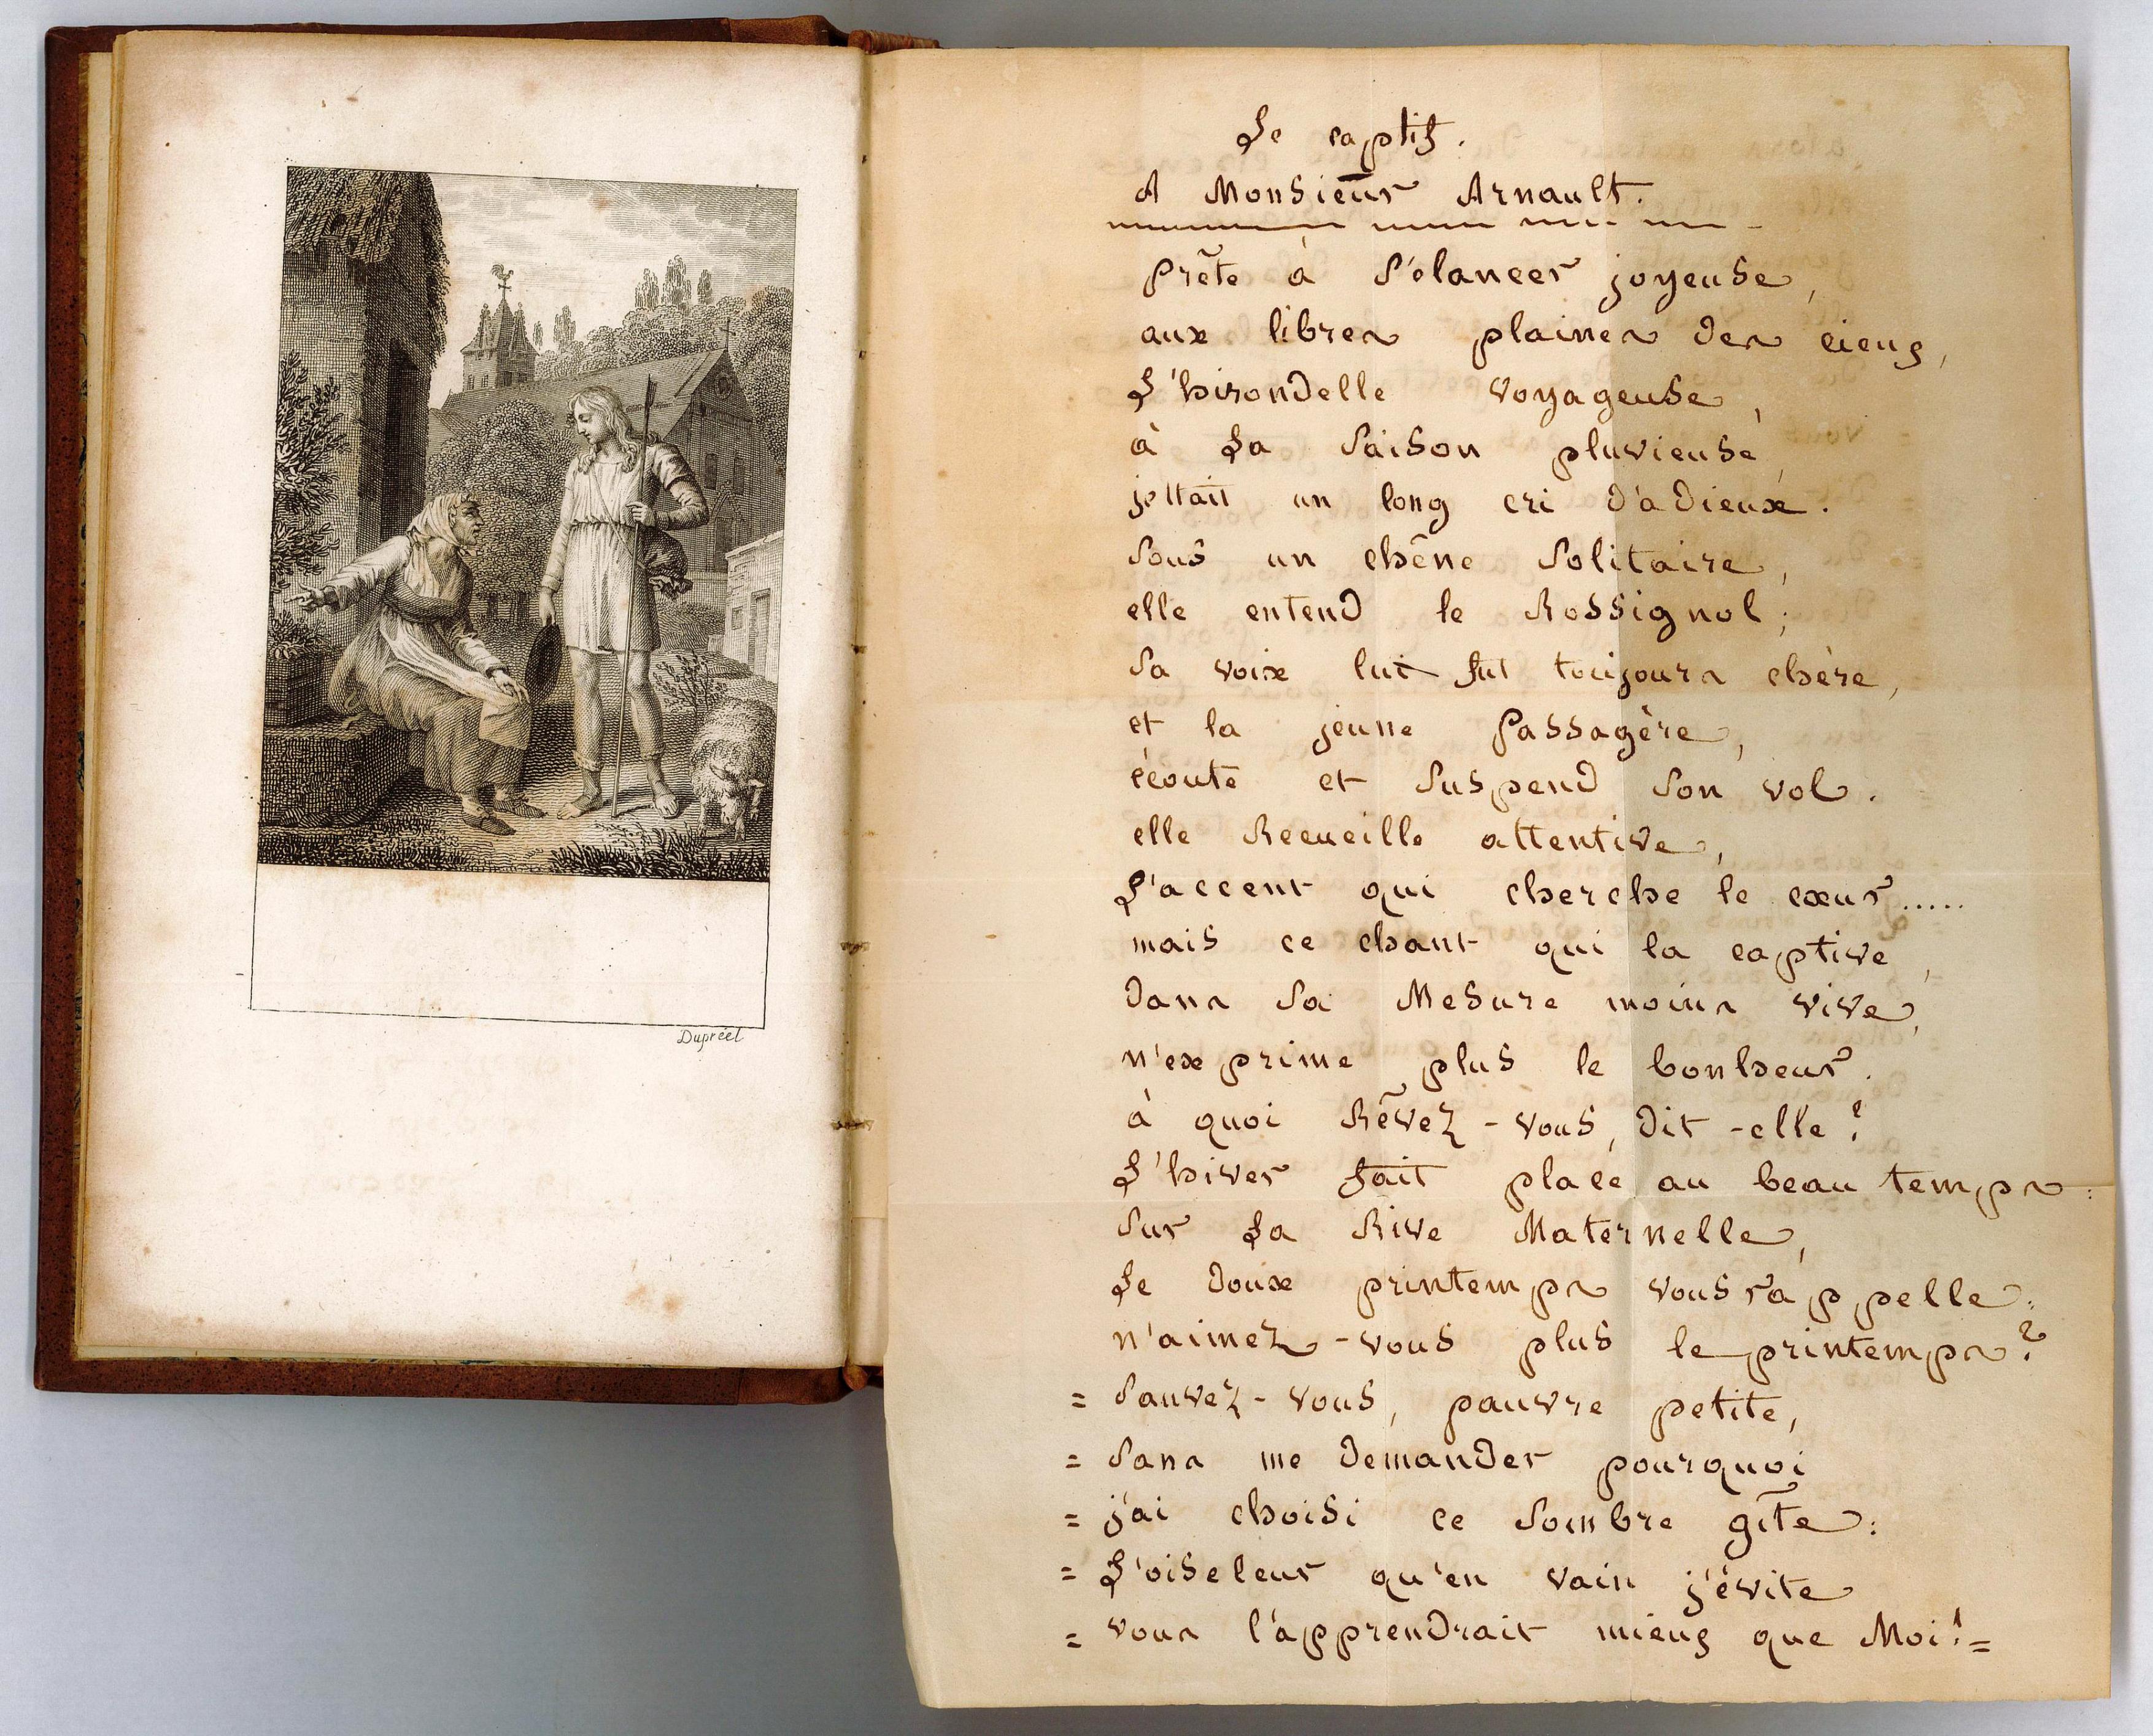 Dupréel
Le captif.
A Monsieur Arnault.
Prête à s'élancer joyeuse,
aux libres plaines des cieux,
L'hirondelle voyageuse,
à La saison pluvieuse,
jettait un long cri d'adieux.
sous un chêne solitaire,
elle entend le Rossignol;
sa voix lui fut toujours chère,
et la jeune Passagère,
écoute et suspend son vol.
elle Recueille attentive,
L'accent qui cherche le cœur.....
mais ce chant qui la captive,
dans sa Mesure moins vive,
n'exprime plus le bonheur.
à quoi Rêvez-vous, dit-elle?
L'hiver fait place au beau temps:
sur La Rive Maternelle,
Le doux printemps vous rappelle:
n'aimez-vous plus le printemps?
= sauvez-vous, pauvre petite,
= sans me demander pourquoi
= j'ai choisi ce sombre gîte:
= L'oiseleur qu'en vain j'évite
= vous l'apprendrait mieux que Moi! =